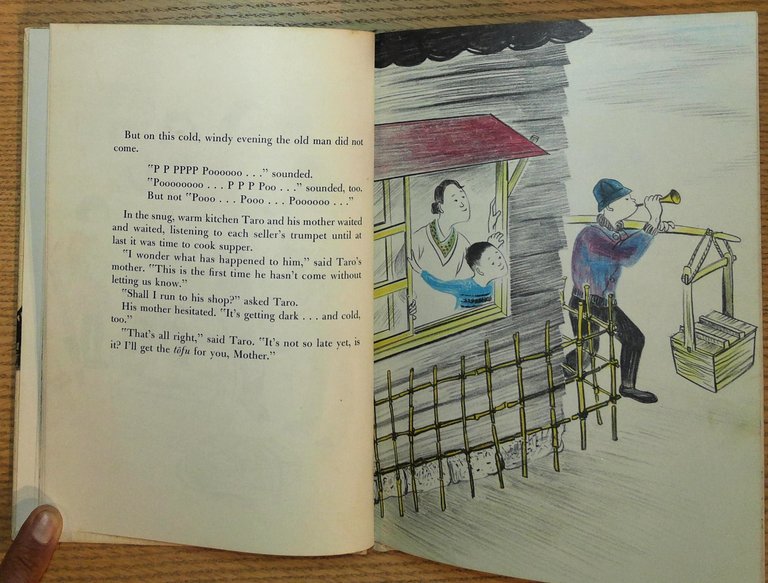 But on this cold, windy evening the old man did not
come.
"P P PPPP Poooooo . . ." sounded.
"Poooooooo . . . P P P Poo . . ." sounded, too.
But not "Pooo . . . Pooo . . . Poooooo . . ."
In the snug, warm kitchen Taro and his mother waited
and waited, listening to each seller's trumpet until at
last it was time to cook supper.
"I wonder what has happened to him," said Taro's
mother. "This is the first time he hasn't come without
letting us know."
"Shall I run to his shop?" asked Taro.
His mother hesitated. "It's getting dark . . . and cold,
too."
"That's all right," said Taro. "It's not so late yet, is
it? I'll get the tōfu for you, Mother."